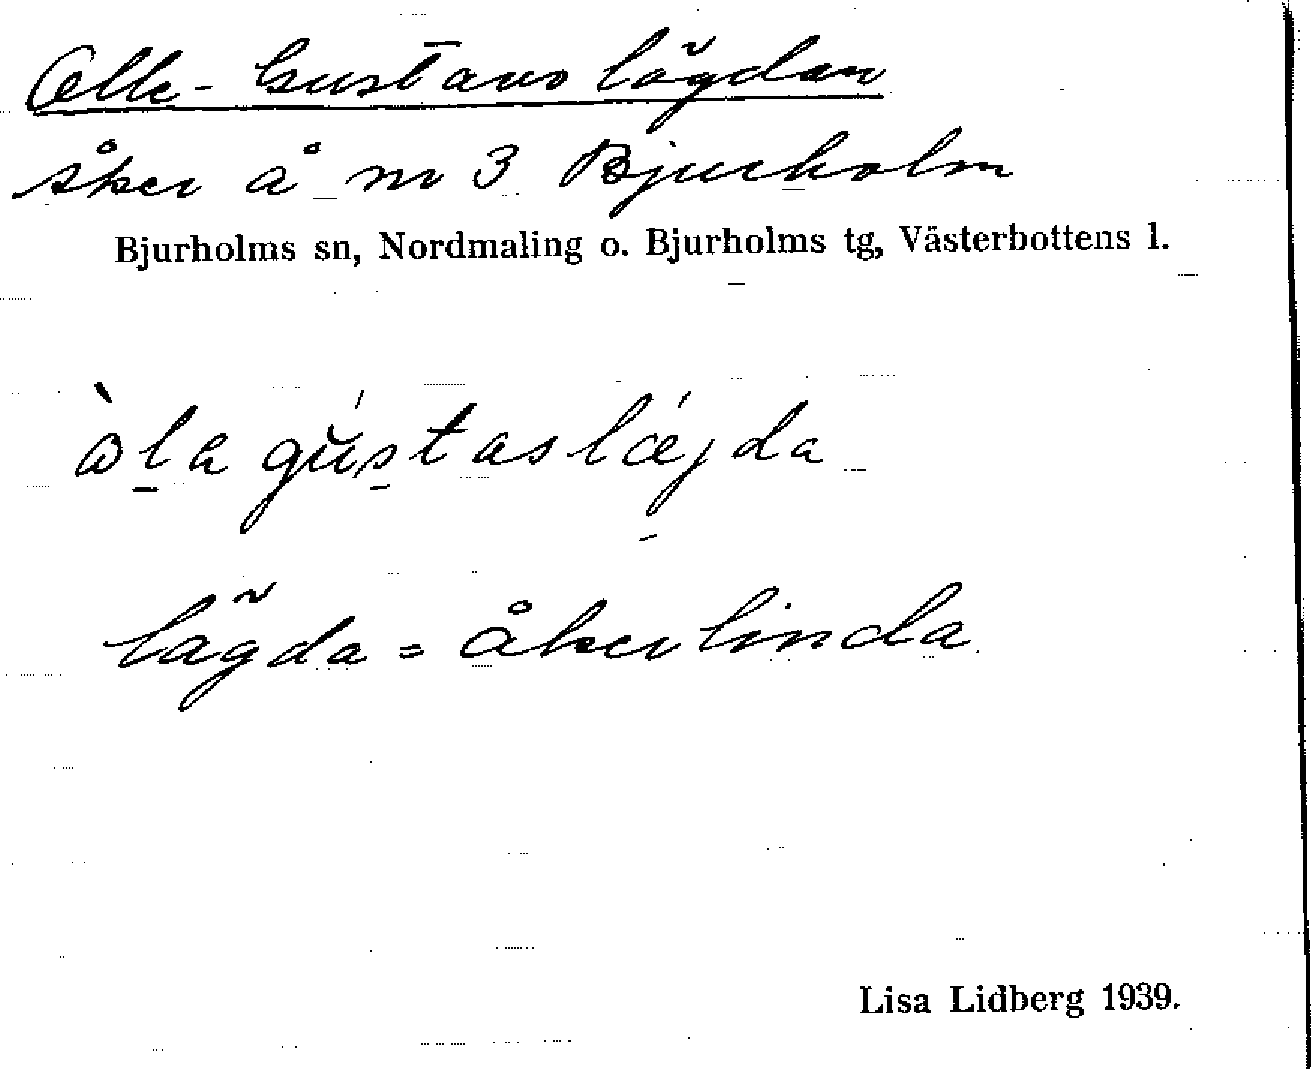 Olle-Gustavs lägdan
åker å nr 3 Bjurholm
Bjurholms sn, Nordmaling o. Bjurholms tg, Västerbottens l.
òla gústaslǽjda
lägda = åkerlinda
Lisa Lidberg 1939.